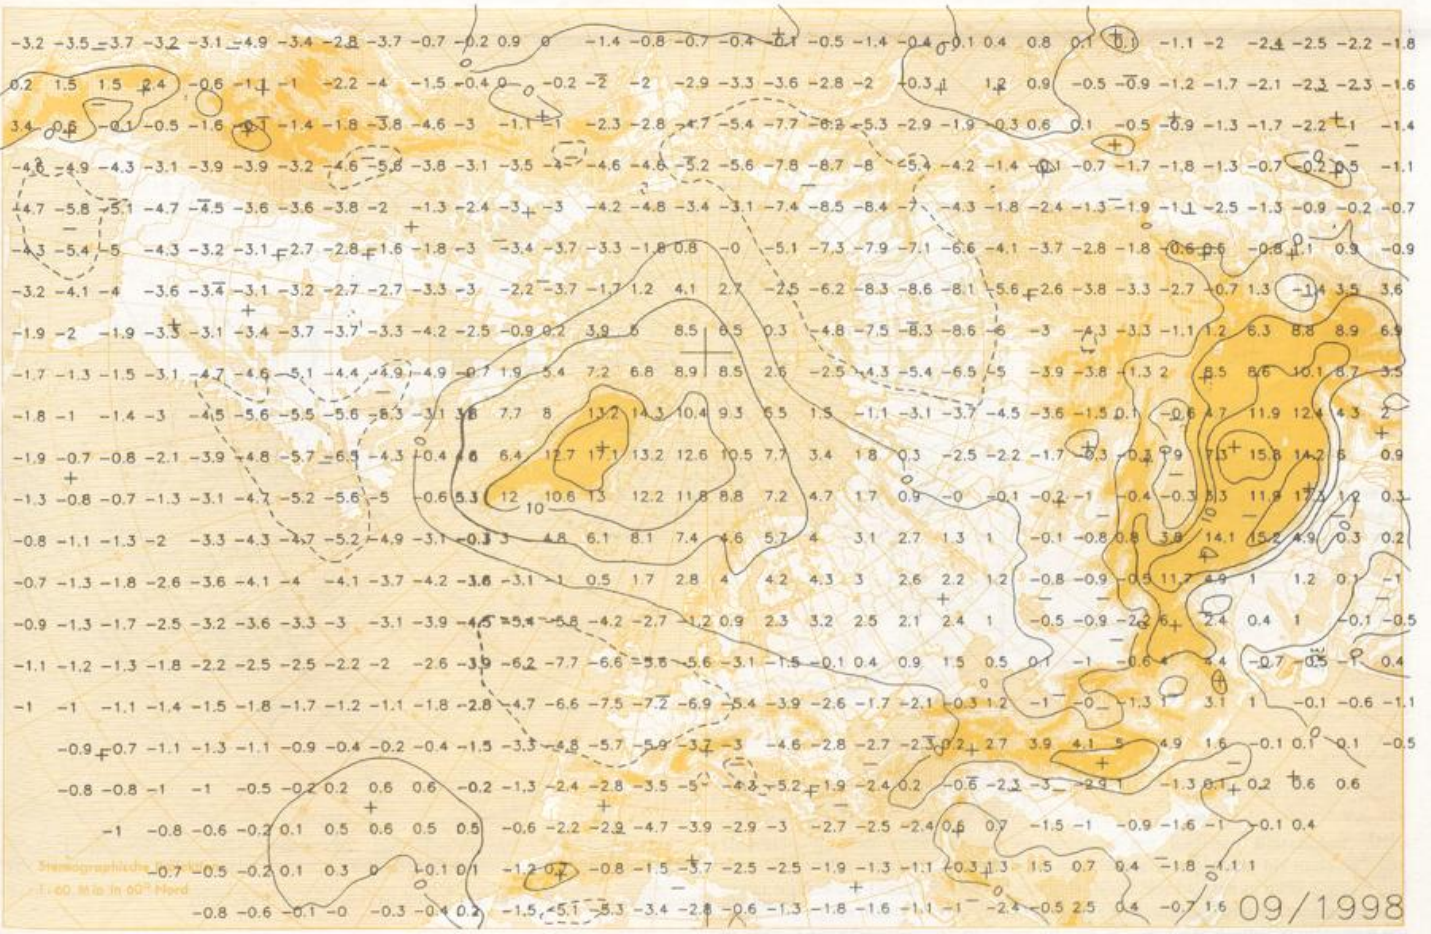 -3.2 -3.5 -3.7 -3.2 -3.1 -4.9 -3.4 -2.8 -3.7 -0.7 -0.2 0.9 0 -1.4 -0.8 -0.7 -0.4 -0.1 -0.5 -1.4 -0.4 -0.1 0.4 0.8 0.1 0.1 -1.1 -2 -2.4 -2.5 -2.2 -1.8
0.2 1.5 1.5 2.4 -0.6 -1.1 -1 -2.2 -4 -1.5 -0.4 0 -0.2 -2 -2 -2.9 -3.3 -3.6 -2.8 -2 -0.3 1 1.2 0.9 -0.5 -0.9 -1.2 -1.7 -2.1 -2.3 -2.3 -1.6
3.4 0.6 -0.1 -0.5 -1.6 -0.1 -1.4 -1.8 -3.8 -4.6 -3 -1.1 -1 -2.3 -2.8 -4.7 -5.4 -7.7 -6.2 -5.3 -2.9 -1.9 -0.3 0.6 0.1 -0.5 -0.9 -1.3 -1.7 -2.2 -1 -1.4
-4.6 -4.9 -4.3 -3.1 -3.9 -3.9 -3.2 -4.6 -5.6 -3.8 -3.1 -3.5 -4 -4.6 -4.6 -5.2 -5.6 -7.8 -8.7 -8 -5.4 -4.2 -1.4 -0.1 -0.7 -1.7 -1.8 -1.3 -0.7 -0.2 0.5 -1.1
-4.7 -5.8 -5.1 -4.7 -4.5 -3.6 -3.6 -3.8 -2 -1.3 -2.4 -3 -3 -4.2 -4.8 -3.4 -3.1 -7.4 -8.5 -8.4 -7 -4.3 -1.8 -2.4 -1.3 -1.9 -1.1 -2.5 -1.3 -0.9 -0.2 -0.7
-4.3 -5.4 -5 -4.3 -3.2 -3.1 -2.7 -2.8 -1.6 -1.8 -3 -3.4 -3.7 -3.3 -1.8 0.8 -0 -5.1 -7.3 -7.9 -7.1 -6.6 -4.1 -3.7 -2.8 -1.8 -0.6 0.6 -0.8 1.1 0.9 -0.9
-3.2 -4.1 -4 -3.6 -3.4 -3.1 -3.2 -2.7 -2.7 -3.3 -3 -2.2 -3.7 -1.7 1.2 4.1 2.7 -2.5 -6.2 -8.3 -8.6 -8.1 -5.6 -2.6 -3.8 -3.3 -2.7 -0.7 1.3 -1.4 3.5 3.6
-1.9 -2 -1.9 -3.3 -3.1 -3.4 -3.7 -3.7 -3.3 -4.2 -2.5 -0.9 0.2 3.9 6 8.5 6.5 0.3 -4.8 -7.5 -8.3 -8.6 -6 -3 -4.3 -3.3 -1.1 1.2 6.3 8.8 8.9 6.9
-1.7 -1.3 -1.5 -3.1 -4.7 -4.6 -5.1 -4.4 -4.9 -4.9 -0.7 1.9 5.4 7.2 6.8 8.9 8.5 2.6 -2.5 -4.3 -5.4 -6.5 -5 -3.9 -3.8 -1.3 2 8.5 8.6 10.1 8.7 3.5
-1.8 -1 -1.4 -3 -4.5 -5.6 -5.5 -5.6 -6.3 -3.1 7.7 8 13.2 14.3 10.4 9.3 6.5 1.5 -1.1 -3.1 -3.7 -4.5 -3.6 -1.5 0.1 -0.6 4.7 11.9 12.4 4.3 2
-1.9 -0.7 -0.8 -2.1 -3.9 -4.8 -5.7 -6.5 -4.3 -0.4 6.4 12.7 17.1 13.2 12.6 10.5 7.7 3.4 1.8 0.3 -2.5 -2.2 -1.7 -0.3 7.3 15.8 14.2 6 0.9
-1.3 -0.8 -0.7 -1.3 -3.1 -4.7 -5.2 -5.6 -5 -0.6 5.3 12 10.6 13 12.2 11.8 8.8 7.2 4.7 1.7 0.9 -0 -0.1 -0.2 -1 -0.4 -0.3 3.3 11.9 17.3 1.2 0.3
10 10
-0.8 -1.1 -1.3 -2 -3.3 -4.3 -4.7 -5.2 -4.9 -3.1 -0.3 3 4.8 6.1 8.1 7.4 4.6 5.7 4 3.1 2.7 1.3 1 -0.1 -0.8 0.8 3.8 14.1 15.2 4.9 0.3 0.2
-0.7 -1.3 -1.8 -2.6 -3.6 -4.1 -4 -4.1 -3.7 -4.2 -3.6 -3.1 -1 0.5 1.7 2.8 4 4.2 4.3 3 2.6 2.2 1.2 -0.8 -0.9 -0.5 11.7 4.9 1 1.2 0.1 -1
-0.9 -1.3 -1.7 -2.5 -3.2 -3.6 -3.3 -3 -3.1 -3.9 -4.5 -5.4 -5.8 -4.2 -2.7 -1.2 0.9 2.3 3.2 2.5 2.1 2.4 1 -0.5 -0.9 -2.2 6 2.4 0.4 1 -0.1 -0.5
-1.1 -1.2 -1.3 -1.8 -2.2 -2.5 -2.5 -2.2 -2 -2.6 -3.9 -6.2 -7.7 -6.6 -5.6 -5.6 -3.1 -1.5 -0.1 0.4 0.9 1.5 0.5 0.1 -1 -0.6 4 4.4 -0.7 -0.5 -1 0.4
-1 -1 -1.1 -1.4 -1.5 -1.8 -1.7 -1.2 -1.1 -1.8 -2.8 -4.7 -6.6 -7.5 -7.2 -6.9 -5.4 -3.9 -2.6 -1.7 -2.1 -0.3 1.2 -1 -0 -1.3 1 3.1 1 -0.1 -0.6 -1.1
-0.9 -0.7 -1.1 -1.3 -1.1 -0.9 -0.4 -0.2 -0.4 -1.5 -3.3 -4.8 -5.7 -5.9 -3.7 -3 -4.6 -2.8 -2.7 -2.3 0.2 2.7 3.9 4.1 5 4.9 1.6 -0.1 0.1 0.1 -0.5
-0.8 -0.8 -1 -1 -0.5 -0.2 0.2 0.6 0.6 -0.2 -1.3 -2.4 -2.8 -3.5 -5 -4.3 -5.2 -1.9 -2.4 0.2 -0.6 -2.3 -3 -2.9 1 -1.3 0.1 0.2 0.6 0.6
-1 -0.8 -0.6 -0.2 0.1 0.5 0.6 0.5 0.5 -0.6 -2.2 -2.9 -4.7 -3.9 -2.9 -3 -2.7 -2.5 -2.4 0.6 0.7 -1.5 -1 -0.9 -1.6 -1 -0.1 0.4
Stereographische Projektion
-0.7 -0.5 -0.2 0.1 0.3 0 -0.1 0.1 -1.2 0.7 -0.8 -1.5 -3.7 -2.5 -2.5 -1.9 -1.1 -0.3 1.3 1.5 0.7 0.4 -1.8 -1.1 1
1:60 Mio in 60° Nord
-0.8 -0.6 -0.1 -0 -0.3 -0.4 0.2 -1.5 -5.1 -5.3 -3.4 -2.8 -0.6 -1.3 -1.8 -1.6 -1.1 -1 -2.4 -0.5 2.5 0.4 -0.7 1.6 09/1998